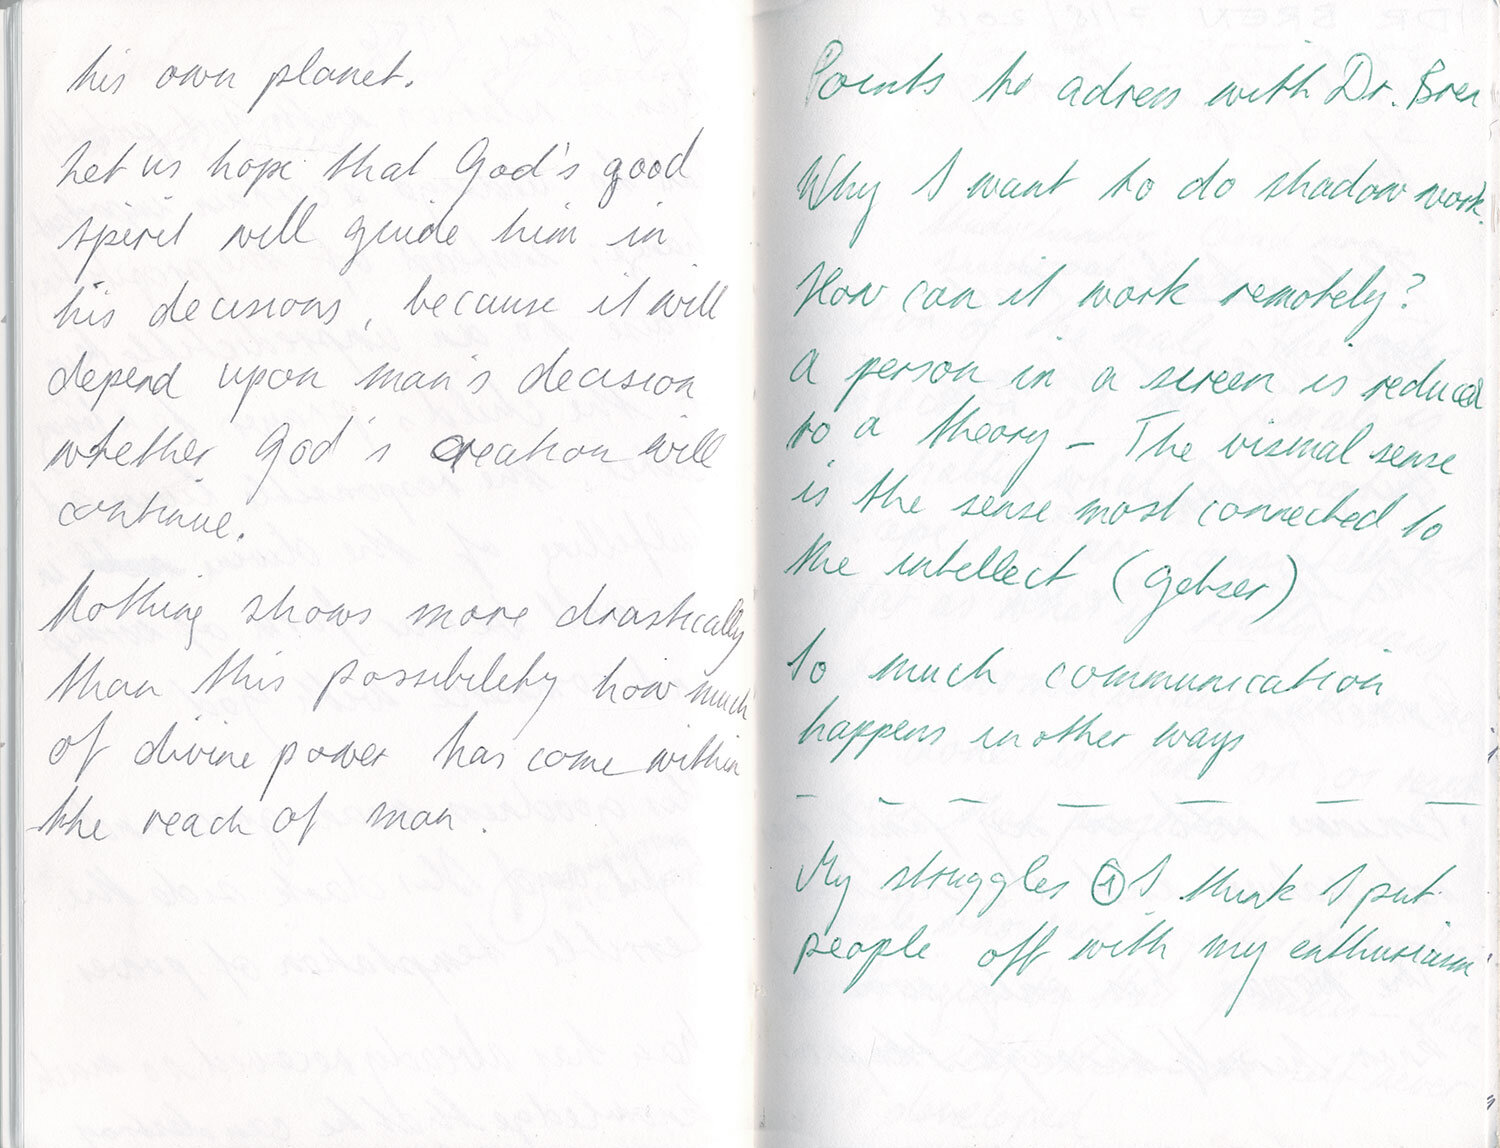 his own planet.
Let us hope that God's good
spirit will guide him in
his decisions, because it will
depend upon man's decision
whether God's creation will
continue.
Nothing shows more drastically
than this possibility how much
of divine power has come within
the reach of man.
Points to adress with Dr. Bren
Why I want to do shadow work.
How can it work remotely?
A person in a screen is reduced
to a theory – The visual sense
is the sense most connected to
the intellect (Gebser)
So much communication
happens in other ways
My struggles ① I think I put
people off with my enthusiasm